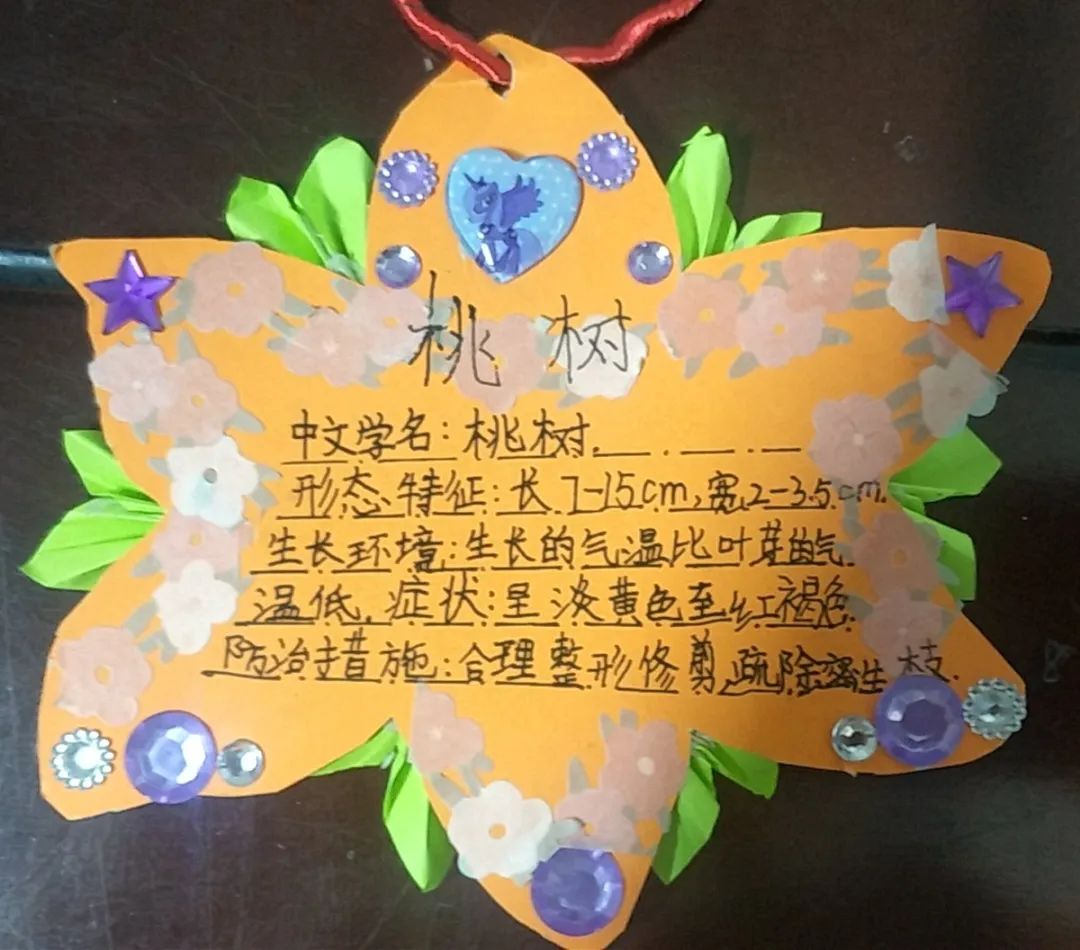 桃树
中文学名:桃树.
形态特征:长7-15cm,宽2-3.5cm.
生长环境:生长的气温比叶芽的气
温低,症状:呈淡黄色至红褐色
防治措施:合理整形修剪,疏除密生枝.